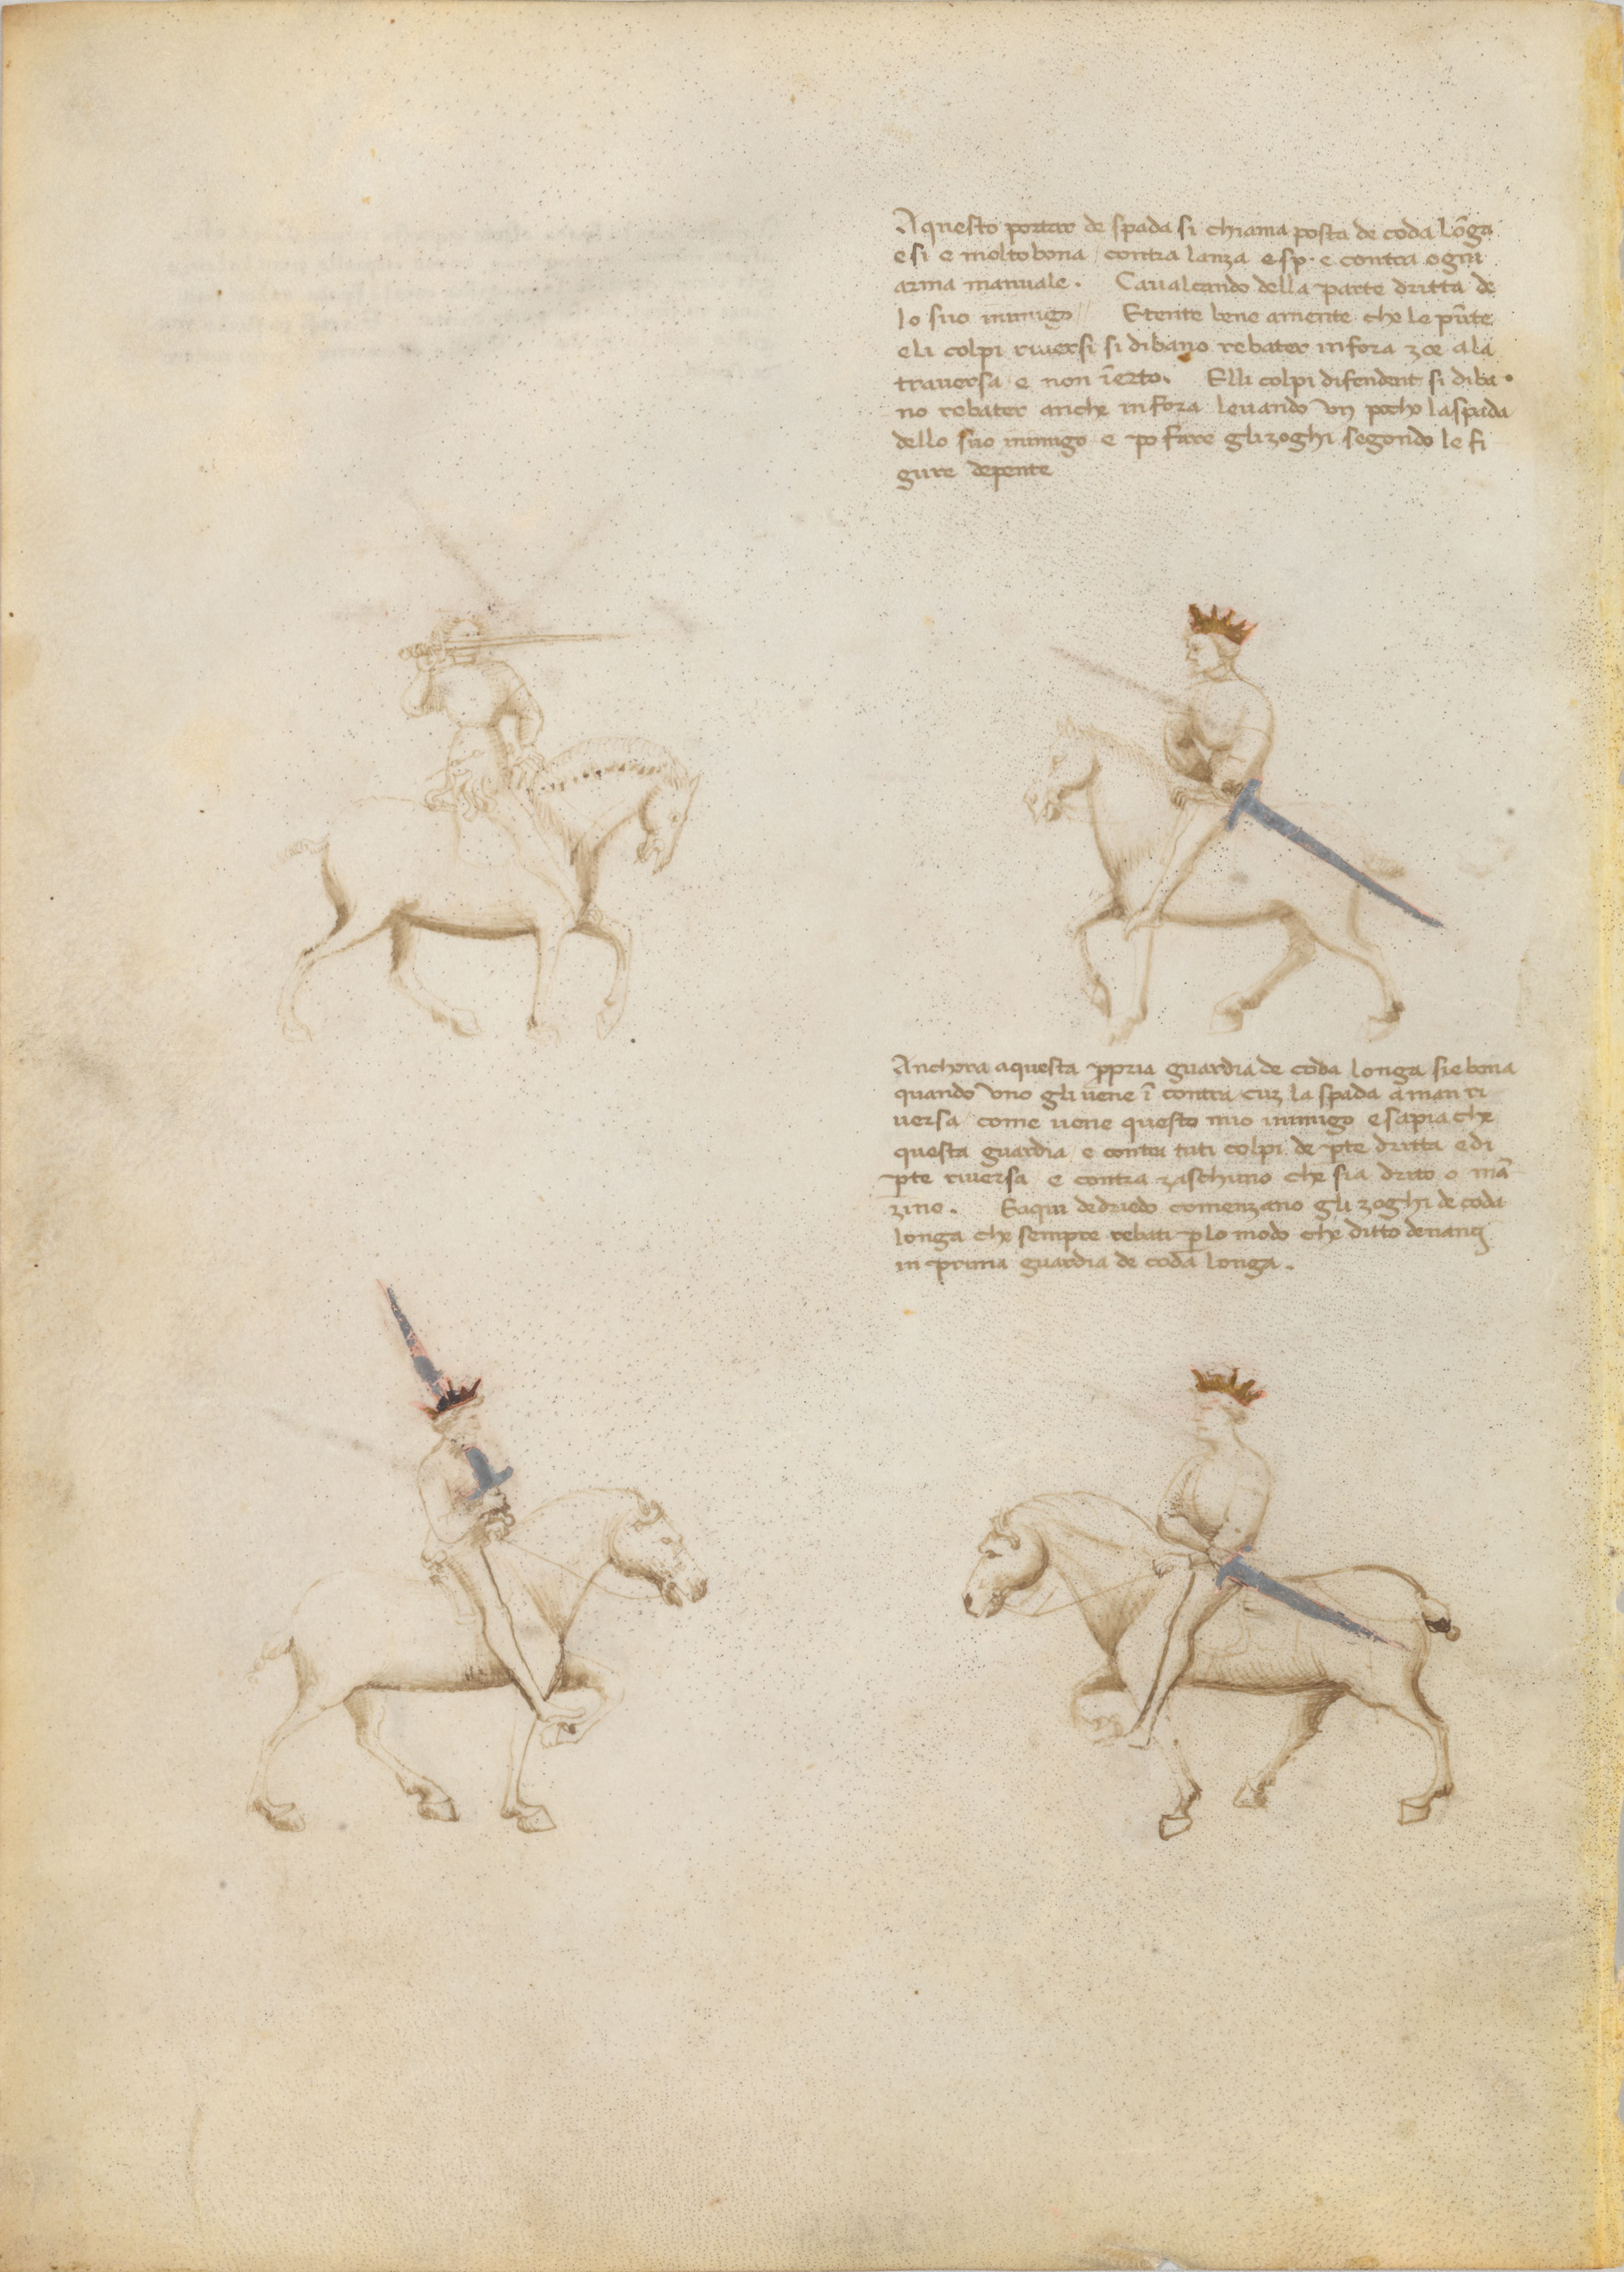 Aquesto portar de spada si chiama posta de coda lo͞ga
e si e molto bona / contra lanza e sp. e contra ogni
arma manuale. Caualcando della parte dritta de
lo suo inimigo // Etente bene amente che le pu͞te
e li colpi riuersi si dibano rebater in fora zoe a la
trauersa e non i͞ erto. E lli colpi difendent si diba
no rebater anche in fora leuando un pocho la spada
dello suo inimigo e po fare gli zoghi segondo le fi
gure depente
Anchora aquesta p̱pria guardia de coda longa si e bona
quando uno gli uene i͞ contra cuz la spada a man ri
uersa / come uene questo mio inimigo e sapia che
questa guardia / e contra tuti colpi de p̱te dritta e di
p̱te riuersa e contra zaschuno che sia drito o ma͞
zino. E aqui dedriedo comenzano gli zoghi de coda
longa che sempre rebati p̱ lo modo che ditto denançi
in prima guardia de coda longa.